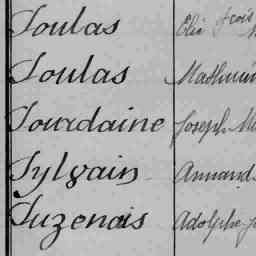 Soulas Elie fcois
Soulas Mathurin
Sourdaine Joseph
Sylvain Armand
Suzenais Adolphe